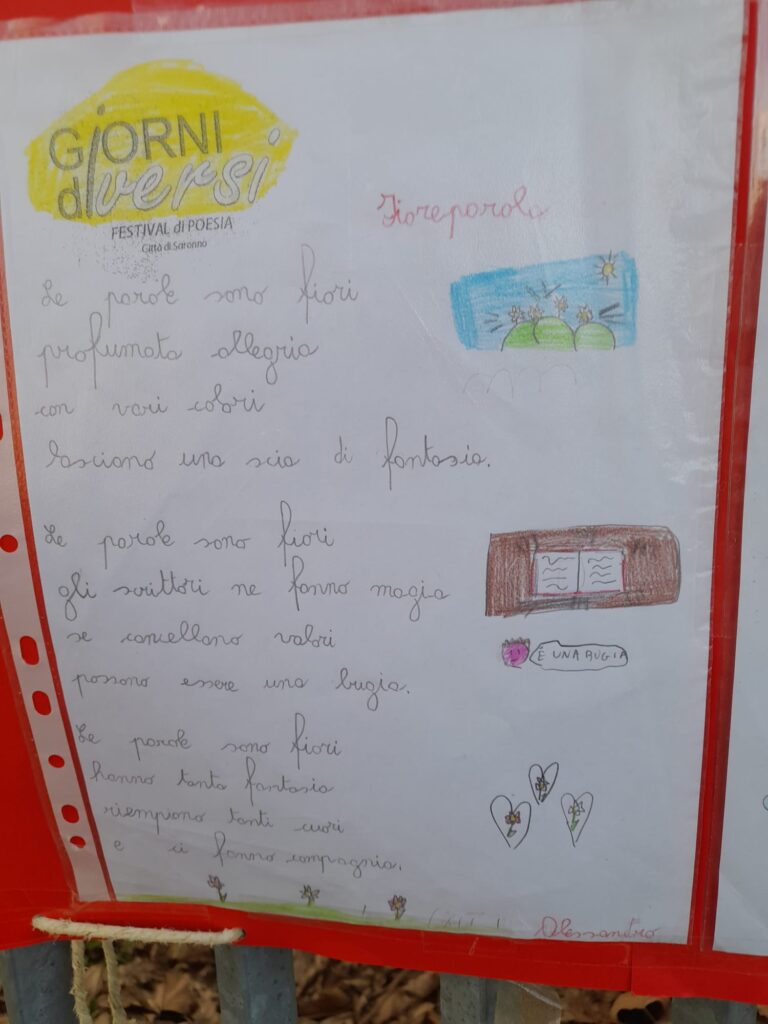 GiORNI
diversi
FESTIVAL di POESIA
Città di Saronno
Fioreparola
Le parole sono fiori
profumata allegria
con vari colori
lasciano una scia di fantasia.
Le parole sono fiori
gli scrittori ne fanno magia
se cancellano valori
possono essere una bugia.
È UNA BUGIA
Le parole sono fiori
hanno tanta fantasia
riempiono tanti cuori
e ci fanno compagnia.
Alessandro